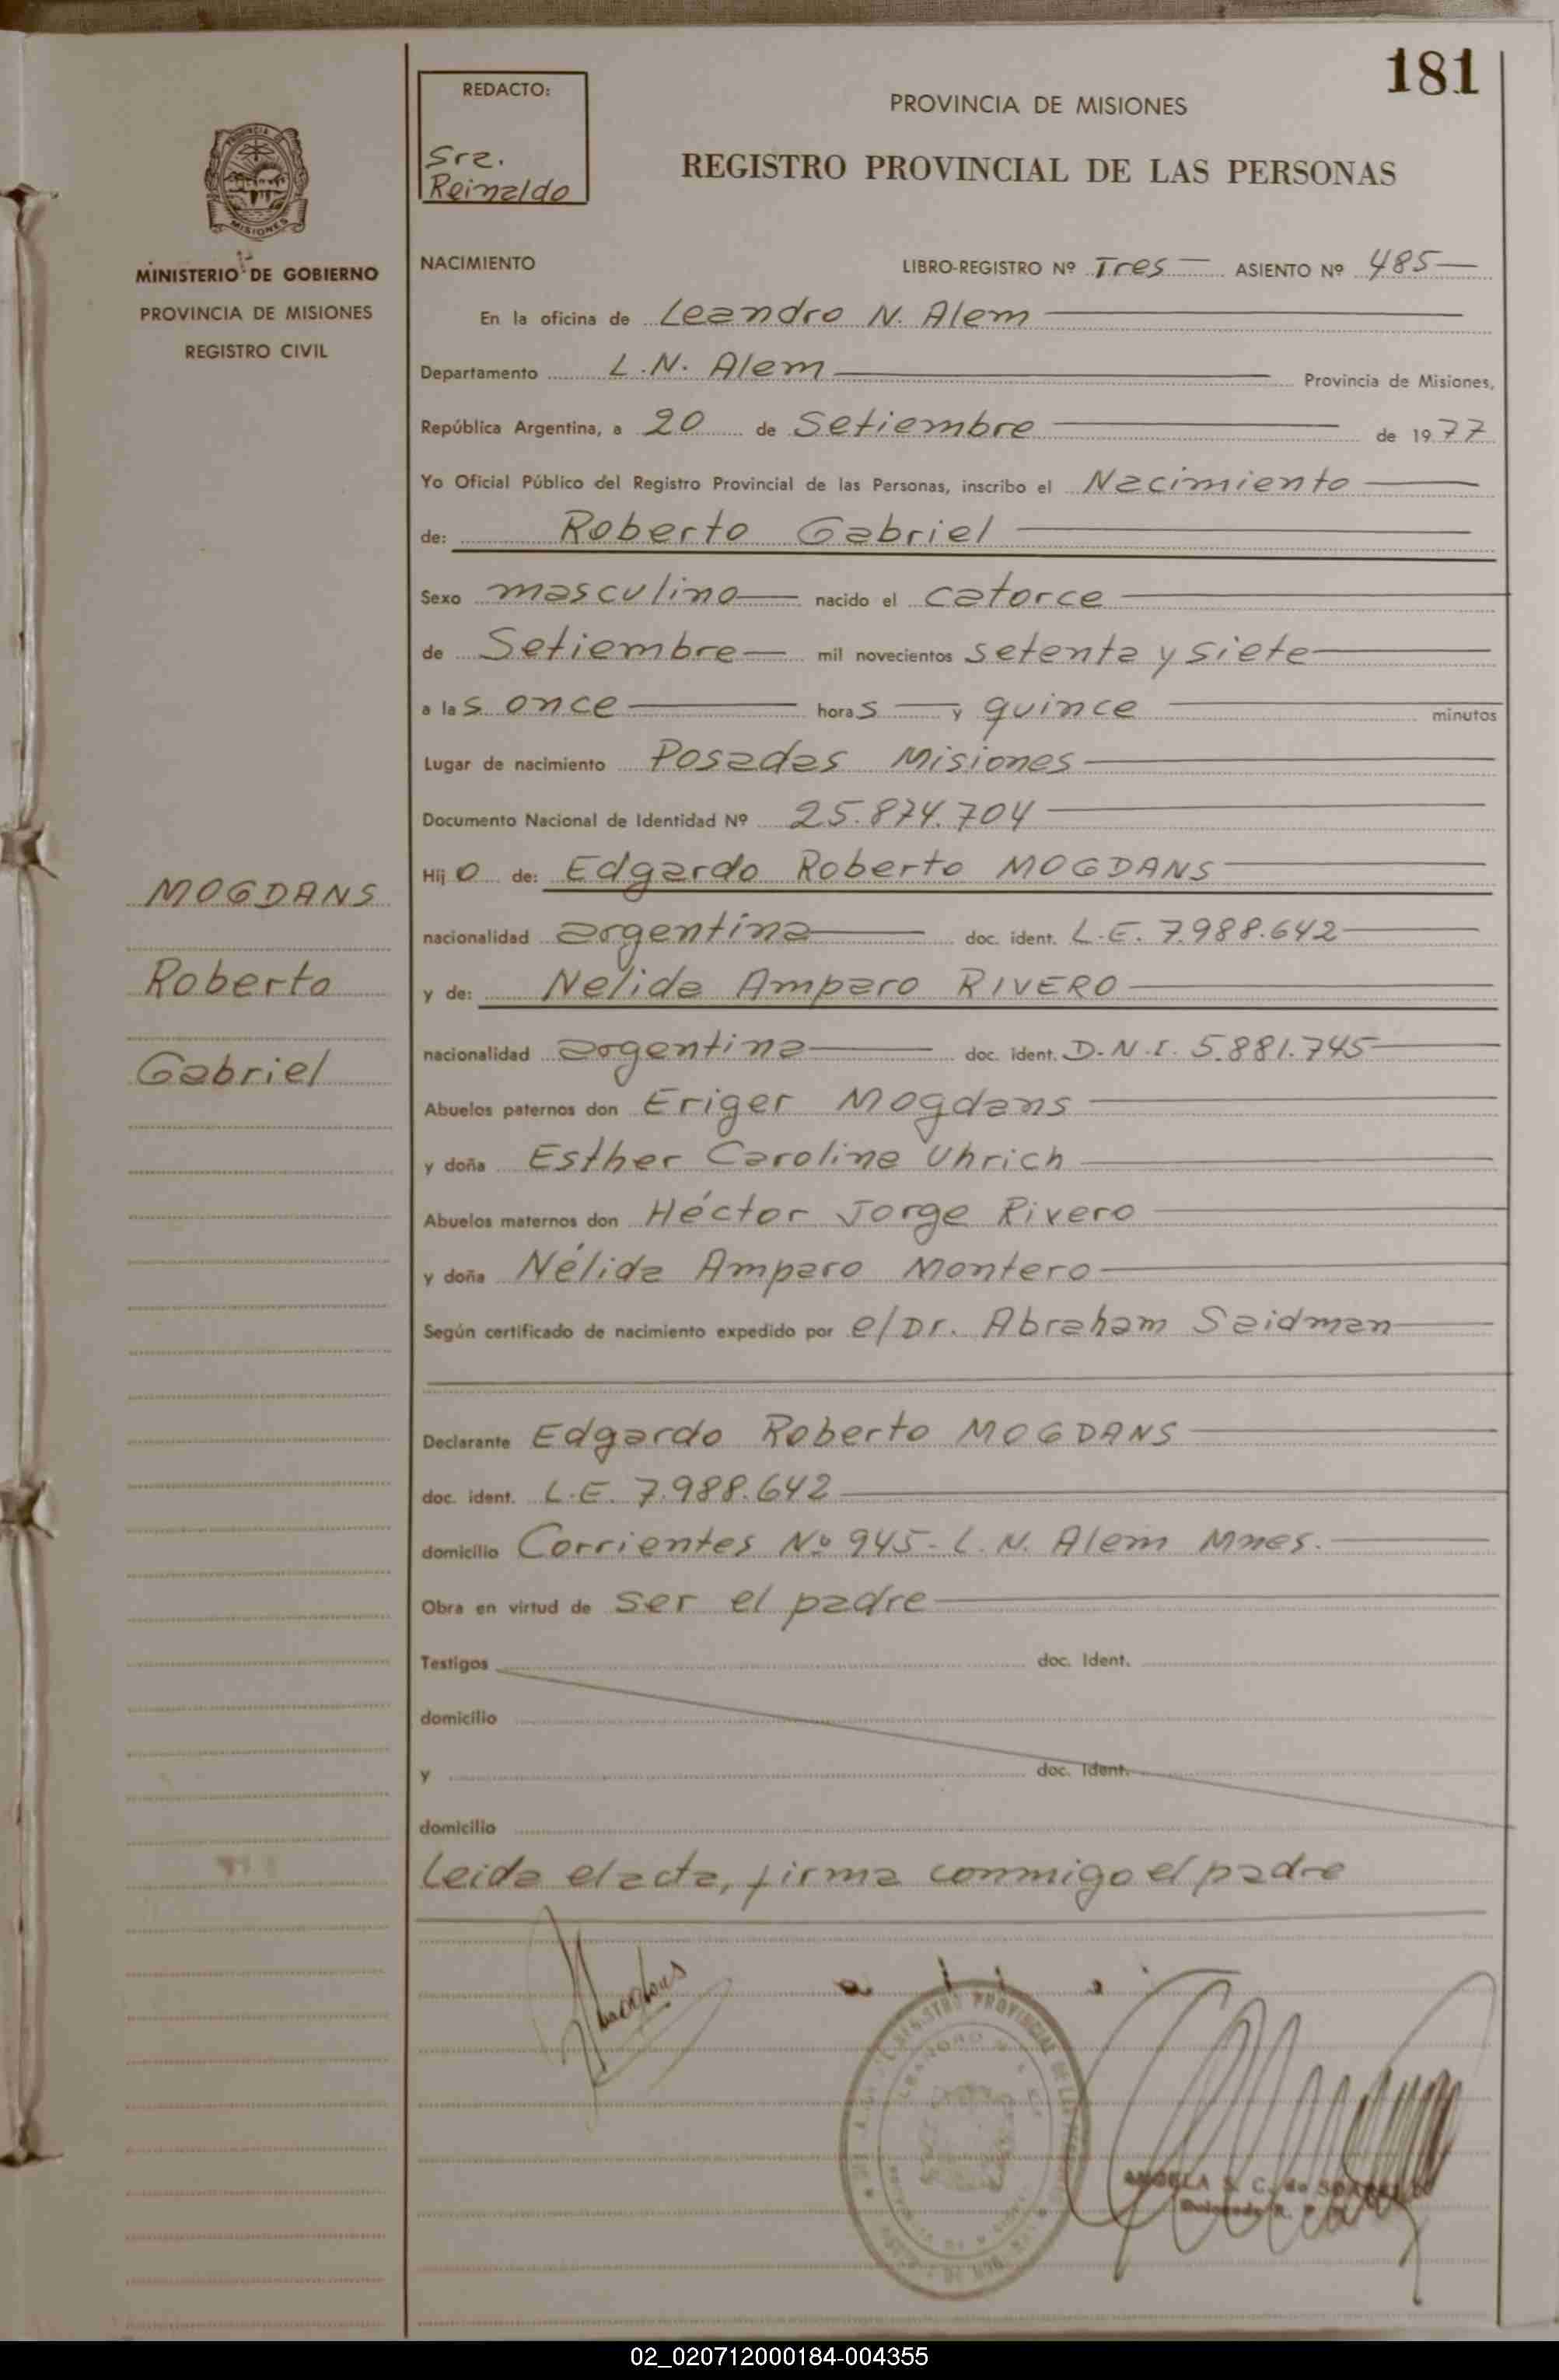 181
REDACTO:
Sra.
Reinaldo
PROVINCIA DE MISIONES
REGISTRO PROVINCIAL DE LAS PERSONAS
MISIONES
MINISTERIO DE GOBIERNO
PROVINCIA DE MISIONES
REGISTRO CIVIL
NACIMIENTO LIBRO-REGISTRO Nº Tres ASIENTO Nº 485
En la oficina de Leandro N. Alem
Departamento L.N. Alem Provincia de Misiones,
República Argentina, a 20 de Setiembre de 1977
Yo Oficial Público del Registro Provincial de las Personas, inscribo el Nacimiento
de: Roberto Gabriel
Sexo masculino nacido el catorce
de Setiembre mil novecientos setenta y siete
a las once horas y quince minutos
Lugar de nacimiento Posadas Misiones
Documento Nacional de Identidad Nº 25.874.704
Hijo de: Edgardo Roberto MOGDANS
nacionalidad argentina doc. ident. L.E. 7.988.642
y de: Nelida Amparo RIVERO
nacionalidad argentina doc. ident. D.N.I. 5.881.745
Abuelos paternos don Eriger Mogdans
y doña Esther Carolina Uhrich
Abuelos maternos don Héctor Jorge Rivero
y doña Nélida Amparo Montero
Según certificado de nacimiento expedido por el Dr. Abraham Saidman
Declarante Edgardo Roberto MOGDANS
doc. ident. L.E. 7.988.642
domicilio Corrientes Nº 945- L.N. Alem Mnes.
Obra en virtud de ser el padre
Testigos doc. Ident.
domicilio
y doc. Ident.
domicilio
Leida el acta, firma conmigo el padre
MOGDANS
Roberto
Gabriel
Mogdans
REGISTRO PROVINCIAL DE LAS
ANGELA S. C. de
02_020712000184-004355